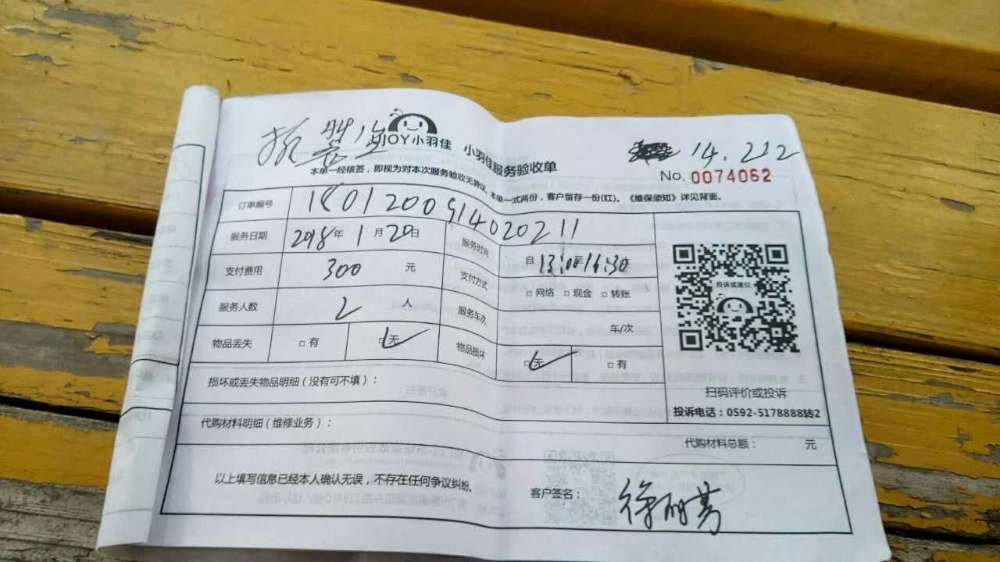 JOY小羽佳 小羽佳服务验收单
14.212
No. 0074062
本单一经核签，即视为对本次服务验收无异议。本单一式两份，客户留存一份(红)。《维保须知》详见背面。
订单编号 1801200914020211
服务日期 2018年1月20日 服务时间 自13:00-16:30
支付费用 300 元 支付方式 □网络 □现金 □转账
服务人数 2 人 服务车次 车/次
物品丢失 □有 □无 物品损坏 □无 □有
投诉或建议
扫码评价或投诉
投诉电话：0592-5178888转2
损坏或丢失物品明细（没有可不填）：
代购材料明细（维修业务）： 代购材料总额： 元
以上填写信息已经本人确认无误，不存在任何争议纠纷。 客户签名：